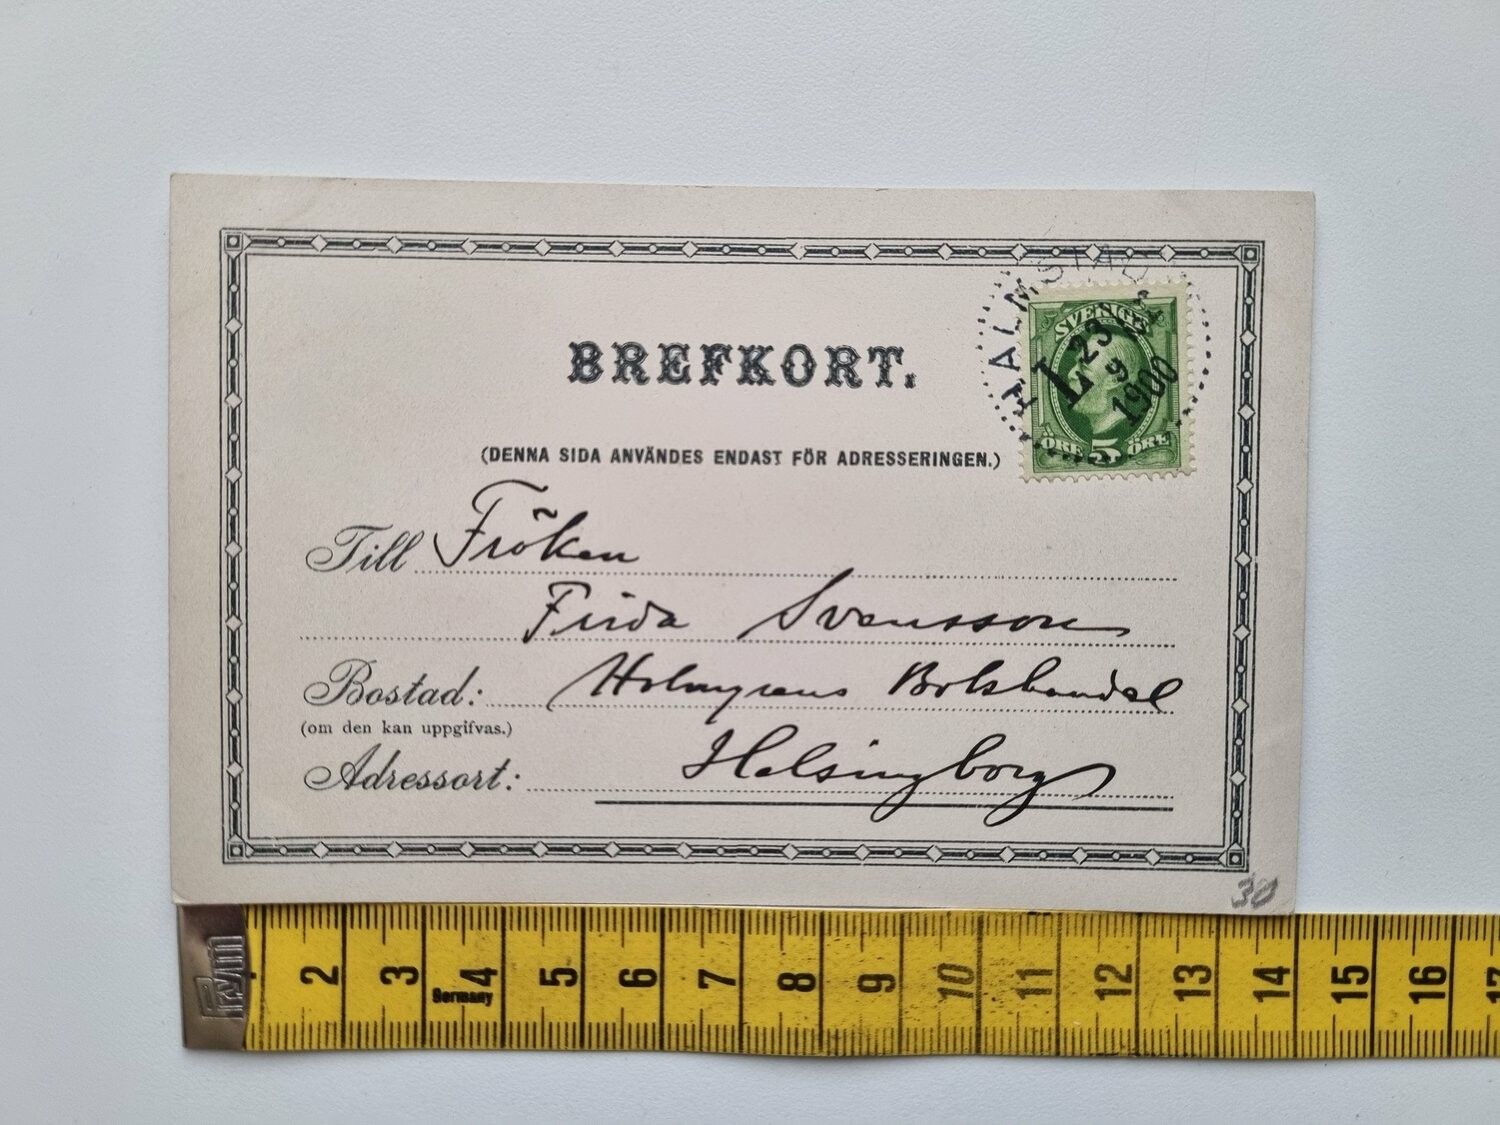 HALMSTAD
SVERIGE
L 23
9
1900
ÖRE 5 ÖRE
BREFKORT.
(DENNA SIDA ANVÄNDES ENDAST FÖR ADRESSERINGEN.)
Till Fröken
Frida Svensson
Bostad: Holmgrens Bokhandel
(om den kan uppgifvas.)
Adressort: Helsingborg
30
Prym
2 3 4 5 6 7 8 9 10 11 12 13 14 15 16 17
Germany